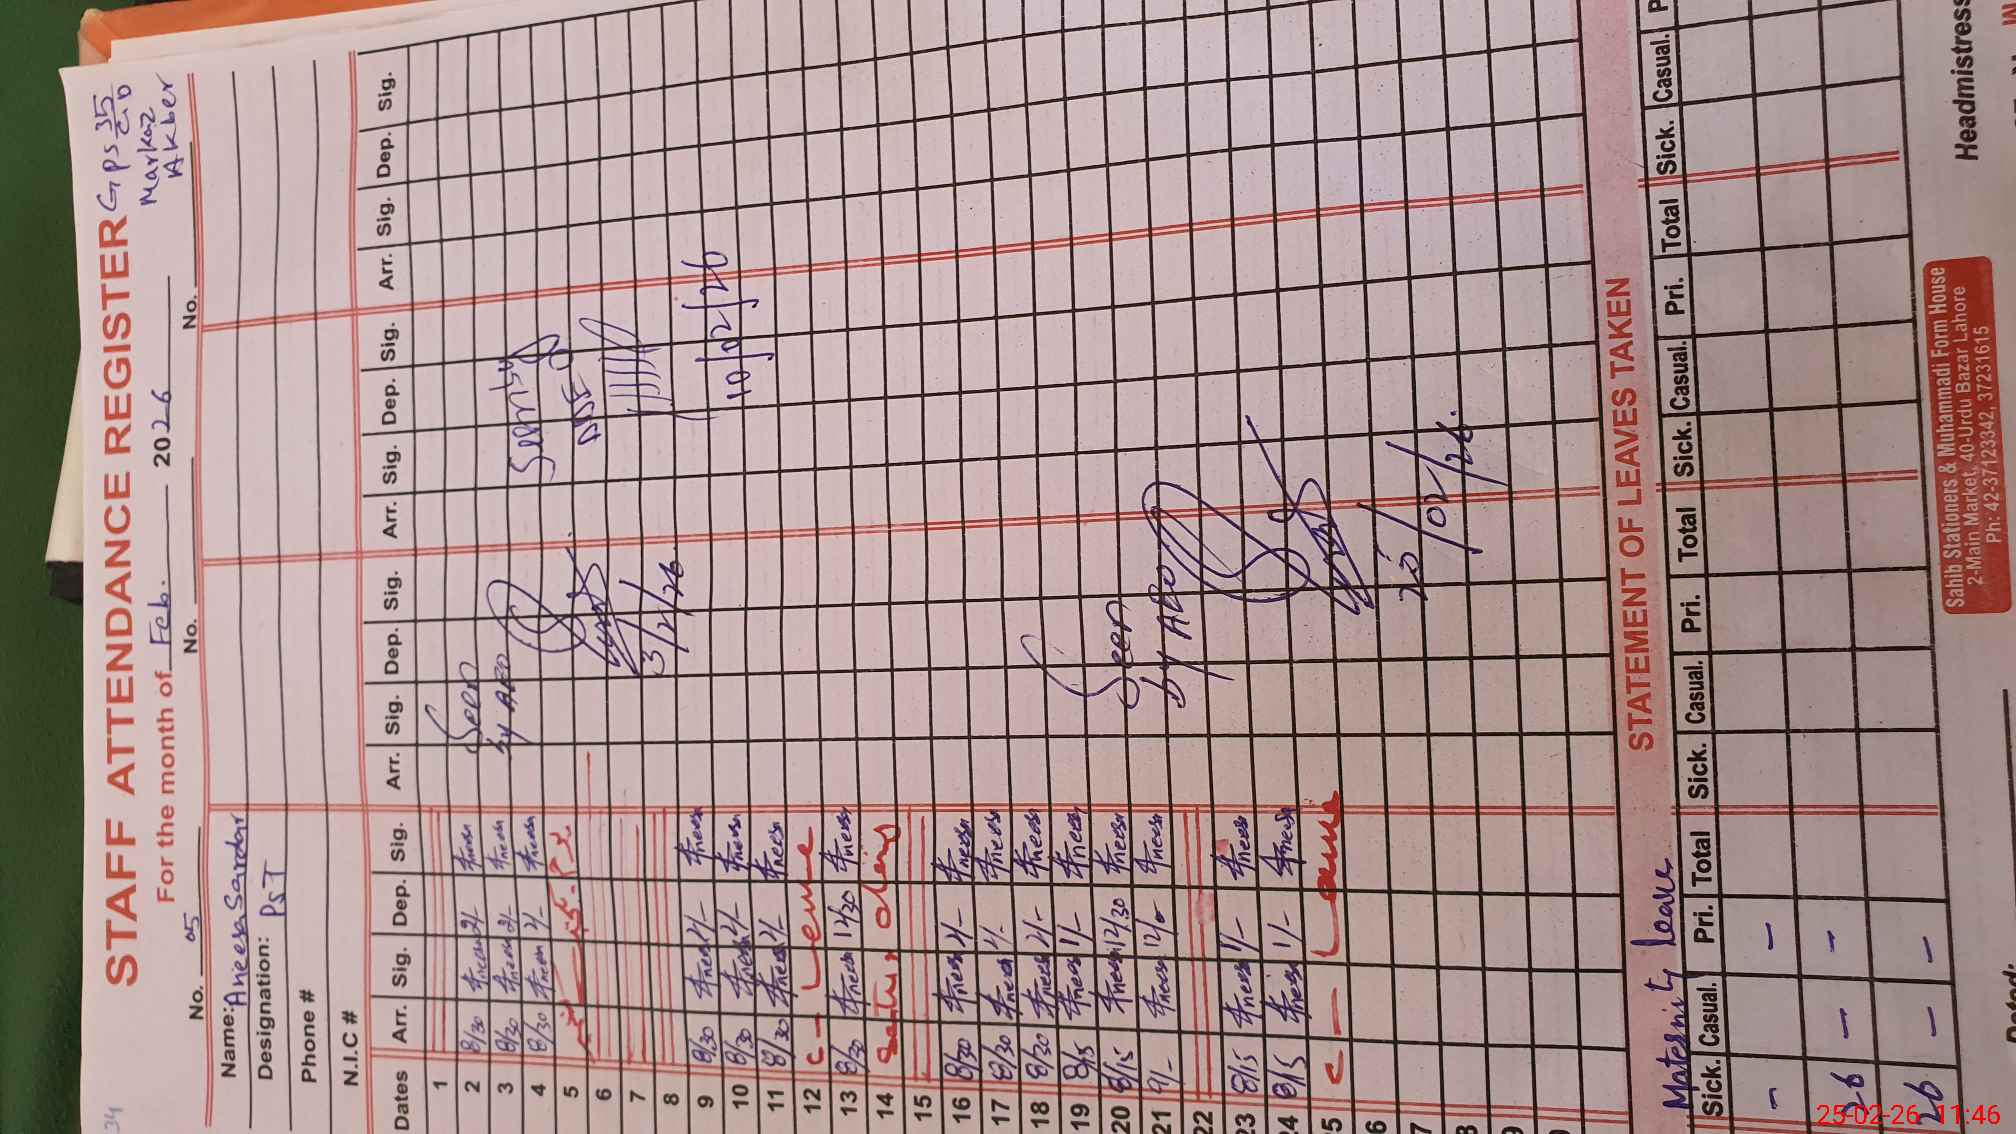 34
STAFF ATTENDANCE REGISTER
GPS 35/2.D
Markaz
Akber
For the month of Feb. 2026
No. 05 No. No.
Name: Aneesa Sardar
Designation: PST
Phone #
N.I.C #
Dates Arr. Sig. Dep. Sig. Arr. Sig. Dep. Sig. Arr. Sig. Dep. Sig. Arr. Sig. Dep. Sig.
1
2 8/30 Aneesa 2/- Aneesa
3 8/30 Aneesa 2/- Aneesa
4 8/30 Aneesa 2/- Aneesa
5
6
7
8
9 8/30 Aneesa 2/- Aneesa
10 8/30 Aneesa 2/- Aneesa
11 8/30 Aneesa 2/- Aneesa
12 C - Leave
13 8/30 Aneesa 12/30 Aneesa
14
15
16 8/30 Aneesa 2/- Aneesa
17 8/30 Aneesa 2/- Aneesa
18 8/30 Aneesa 2/- Aneesa
19 8/15 Aneesa 1/- Aneesa
20 8/15 Aneesa 12/30 Aneesa
21 9/- Aneesa Aneesa
22
23 8/15 Aneesa 1/- Aneesa
24 8/15 Aneesa 1/- Aneesa
25 C - Leave
Seen
by AEO
3/2/26
Seen by
10/02/26
Seen
by AEO
25/02/26.
STATEMENT OF LEAVES TAKEN
Maternity leave
Sick. Casual. Pri. Total Sick. Casual. Pri. Total Sick. Casual. Pri. Total Sick. Casual.
- -
26 - -
26 - -
Headmistress
Sahib Stationers & Muhammadi Form House
2-Main Market, 40-Urdu Bazar Lahore
Ph: 42-37123342, 37231615
Dated:
25-02-26 11:46